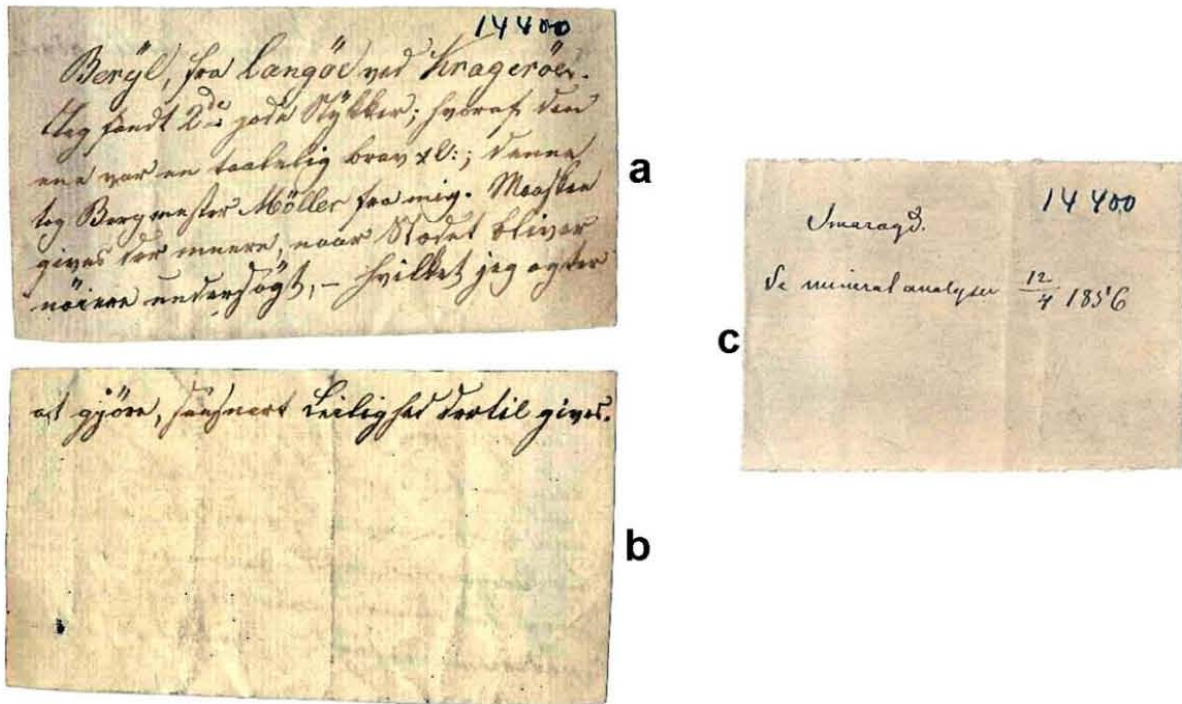 14400
Berÿl, fra Langöe ved Krageröe.
Jeg fandt 2de gode Stÿkker; hvoraf den
ene var en taalelig brav xl:; denne
tog Bergmester Möller fra mig. Maaskee
gives der meere, naar Stedet bliver
nöiere undersögt, – hvilket jeg agter
a
at gjöre, saasnart Leilighed dertil gives.
b
14400
Smaragd.
mineralanalyser 12/4 1856
c